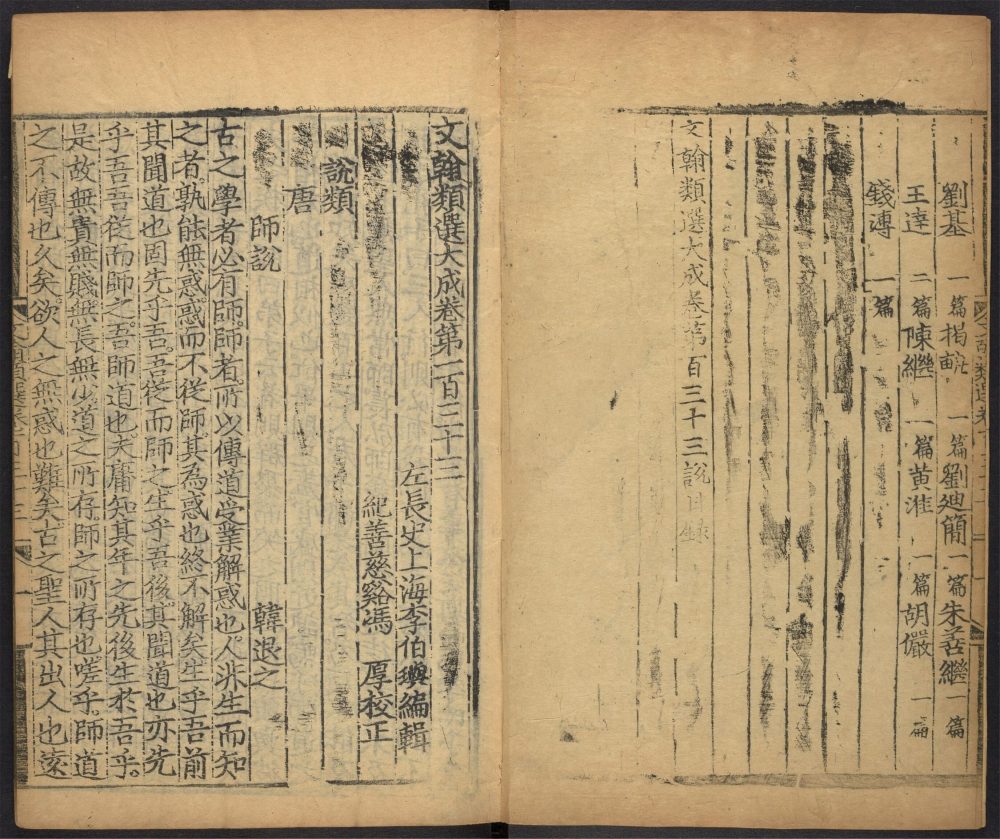 劉基 一篇 揭軏 一篇 劉廸簡 一篇 朱善繼 一篇
王達 二篇 陳繼 一篇 黄淮 一篇 胡儼 一篇
錢溥 一篇
文翰類選大成卷第百三十三說目錄
文翰類選大成卷第一百三十三
左長史上海李伯璵編輯
紀善慈谿馮 厚校正
說類
唐
師說 韓退之
古之學者必有師。師者。所以傳道受業解惑也。人非生而知
之者。孰能無惑。惑而不從師。其為惑也終不解矣。生乎吾前
其聞道也固先乎吾。吾從而師之。生乎吾後。其聞道也亦先
乎吾。吾從而師之。吾師道也。夫庸知其年之先後生於吾乎。
是故無貴無賤無長無少。道之所存。師之所存也。嗟乎。師道
之不傳也久矣。欲人之無惑也難矣。古之聖人其出人也遠